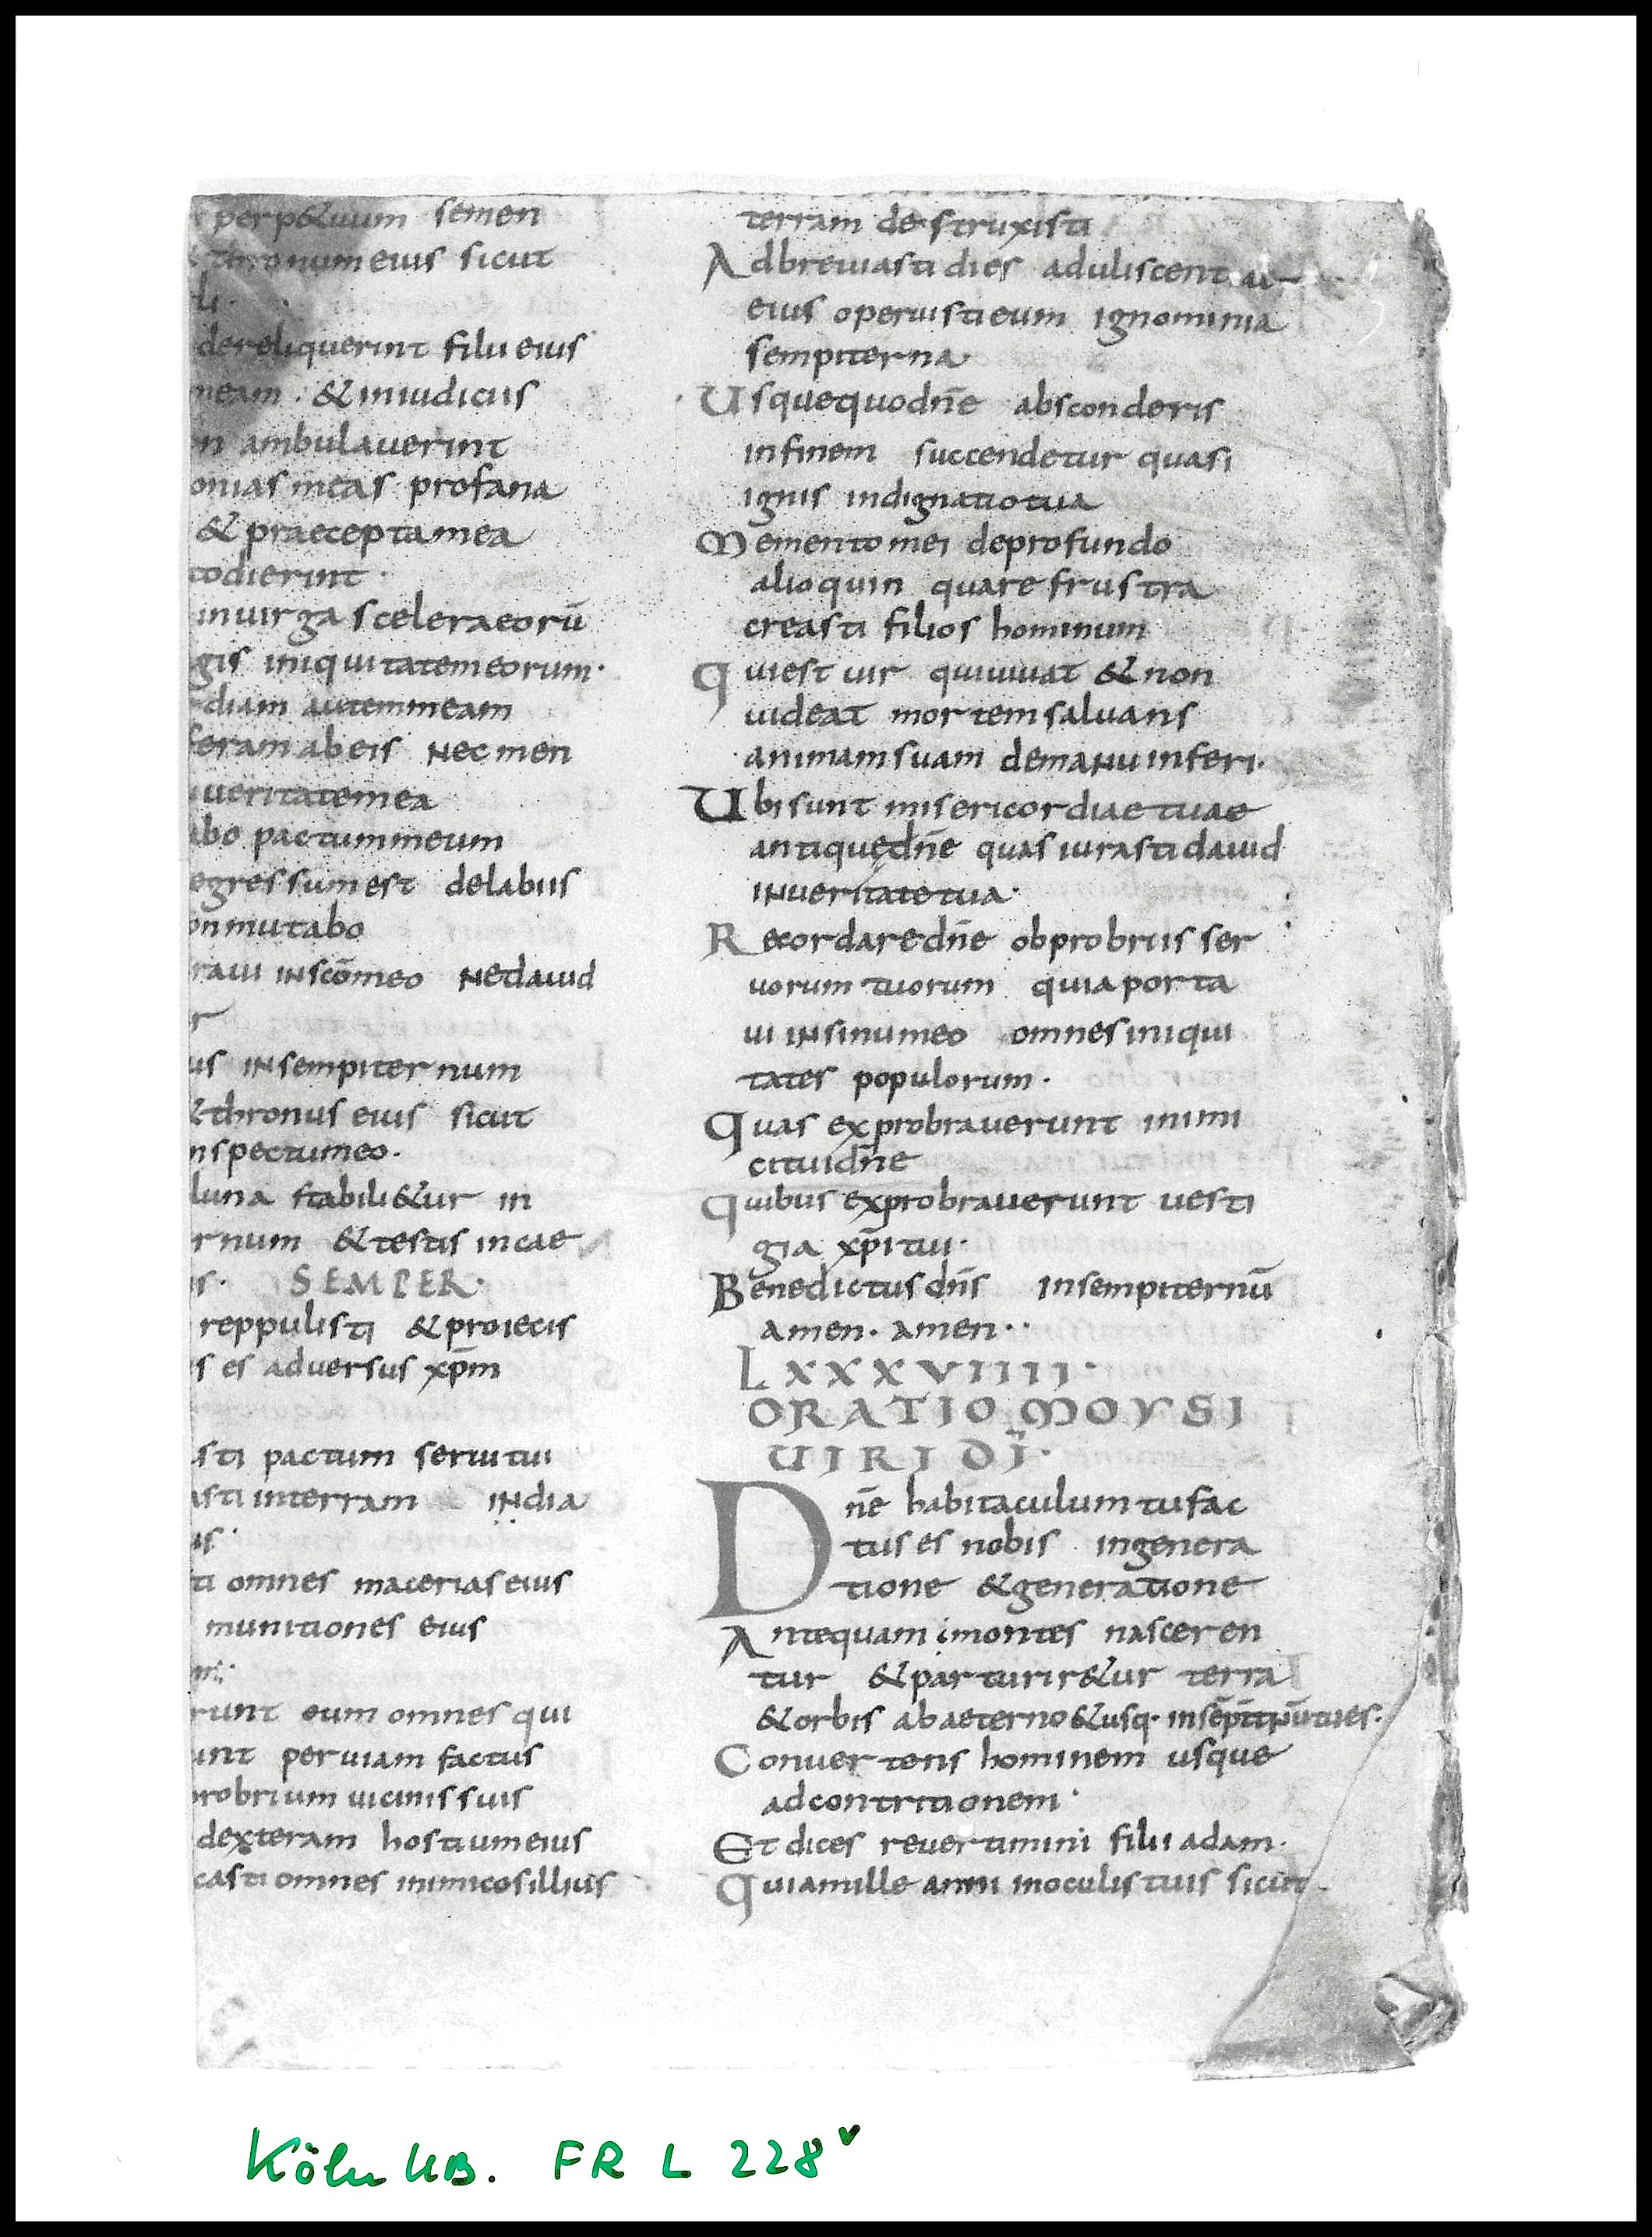 perp&uum semen
thronum eius sicut
li·
dereliquerint filii eius
meam · & iniudiciis
n ambulauerint
onias meas profana
& praecepta mea
todierint·
inuirga scelera eorū
gis iniquitatem eorum·
diam autem meam
feram ab eis nec men
ueritate mea
abo pactum meum
egressum est delabiis
onmutabo
raui inscōmeo ne dauid
r
us insempiternum
&thronus eius sicut
nspectu meo·
luna stabili&ur in
rnum & testis in cae
is· SEMPER·
reppulisti & proiecis
s es aduersus xp̄m
sti pactum serui tui
asti interram india
us·
ti omnes macerias eius
munitiones eius
m·
runt eum omnes qui
unt per uiam factus
probrium uicinis suis
dexteram hostium eius
casti omnes inimicos illius
terram destruxisti
Adbreuiasti dies aduliscentai
eius operuisti eum ignominia
sempiterna·
Usquequo dn̄e absconderis
infinem succendetur quasi
ignis indignatio tua
Memento mei deprofundo
alioquin quare frustra
creasti filios hominum
Qui est uir qui uiuat & non
uideat mortem saluans
animam suam demanu inferi·
Ubi sunt misericordiae tuae
antiquę dn̄e quas iurasti dauid
inueritate tua·
Recordare dn̄e obprobriis ser
uorum tuorum quia porta
ui insinu meo omnes iniqui
tates populorum·
Quas exprobrauerunt inimi
ci tui dn̄e
Quibus exprobrauerunt uesti
gia xp̄i tui·
Benedictus dn̄s insempiternū
amen· amen··
LXXXVIIII·
ORATIO MOYSI
UIRI DĪ·
Dn̄e habitaculum tu fac
tus es nobis ingenera
tione & generatione
Antequam montes nasceren
tur & parturir&ur terra
& orbis ab aeterno & usq· insēpit̄nū tu es·
Conuertens hominem usque
ad contritionem·
Et dices reuertimini filii adam·
Quia mille anni inoculis tuis sicut
Köln UB. FR L 228v